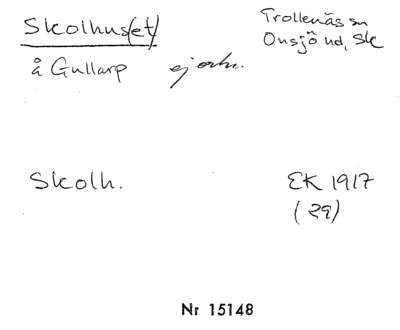 Skolhus(et)
Trollenäs sn
Onsjö hd, Sk
å Gullarp ej ortn.
Skolh.
EK 1917
(29)
Nr 15148